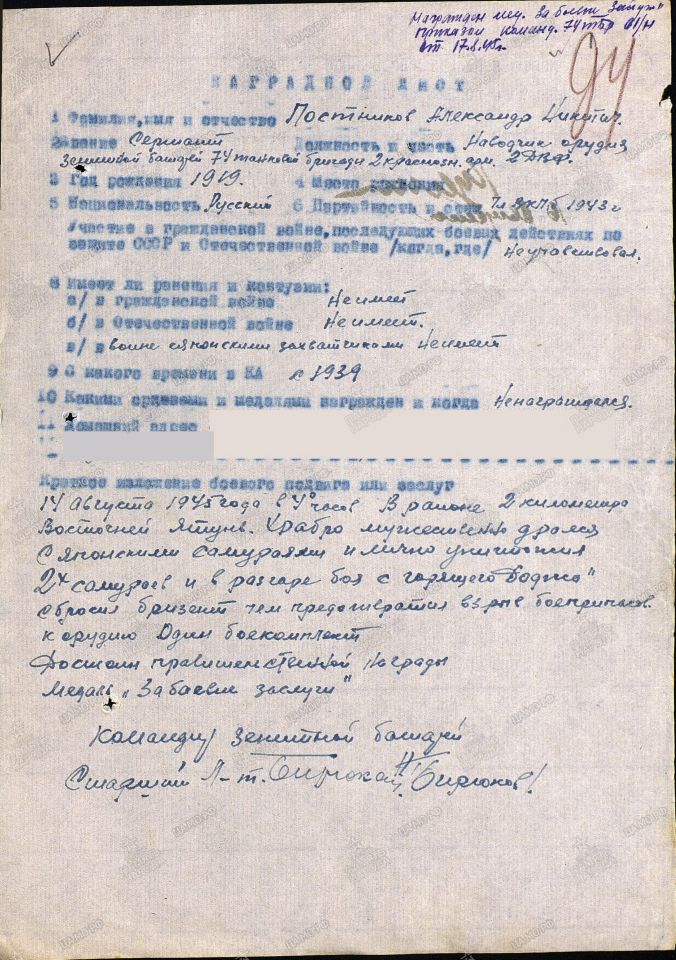 Награжден мед. "За боевые заслуги"
приказом команд. 74 тбр 01/н
от 17.8.45г.
94
НАГРАДНОЙ ЛИСТ
1 Фамилия, имя и отчество Постников Александр Никтич.
2 Звание Сержант Должность и часть Наводчик орудия
Зенитной батареи 74 танковой бригады 2 краснозн. арм. 2 ДВФ.
3 Год рождения 1919. 4 Место рождения
5 Национальность Русский 6 Партийность и стаж 1943 г
Участие в гражданской войне, последующих боевых действиях по
защите СССР и Отечественной войне /когда, где/ Неучавствовал.
8 Имеет ли ранения и контузии:
а/ в гражданской войне Неимеет
б/ в Отечественной войне Неимеет.
в/ в войне с японскими захватчиками Неимеет
9 С какого времени в КА с 1939
10 Какими орденами и медалями награжден и когда Ненаграждался.
11 Домашний адрес
Краткое изложение боевого подвига или заслуг
14 августа 1945 года в часов В районе 2 километра
Восточней Храбро мужественно дрался
с Японскими самураями и лично уничтожил
2х самураев и в разгаре боя с горящего "Доджа"
сбросил бризент чем предотвратил взрыв боеприпасов
к орудию Один боекомплект
Достоин правительственной Награды
Медаль "За боевые заслуги"
Командир зенитной батареи
Старший Л-т. /Бирюков/